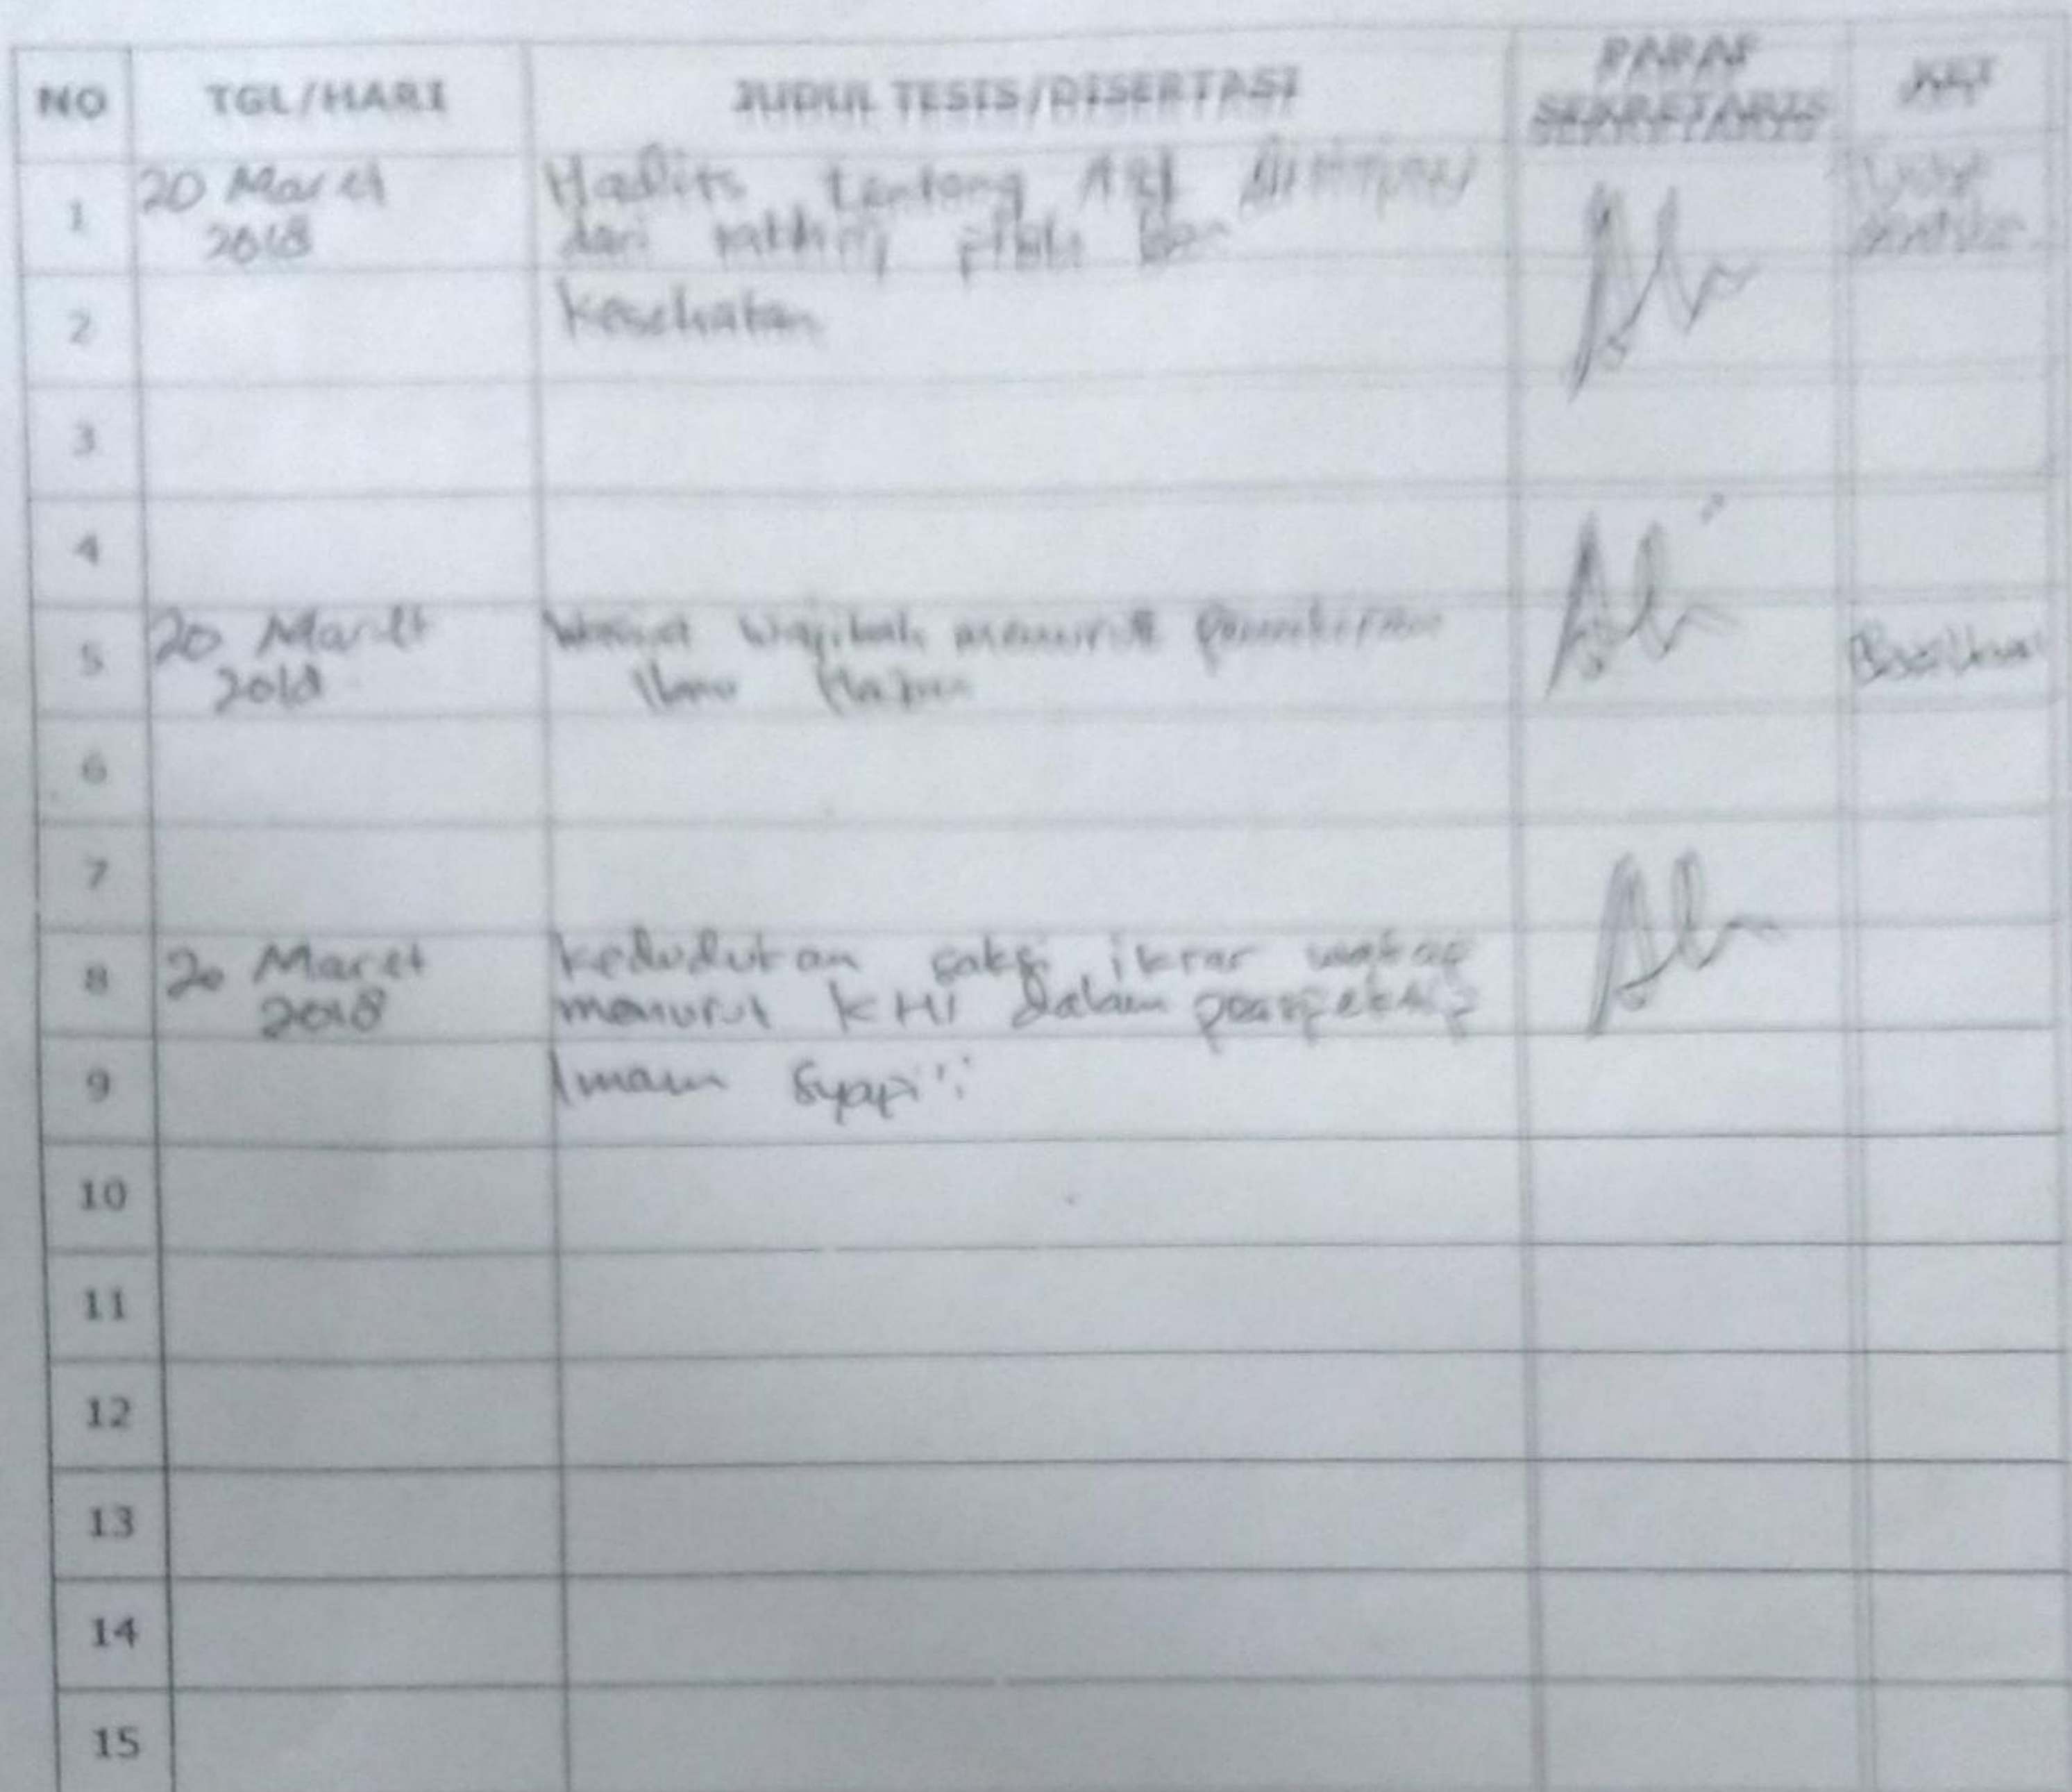 NO TGL/HARI JUDUL TESIS/DISERTASI PARAF SEKRETARIS KET
1 20 Maret 2018 Hadits tentang ASI
dari fikih dan
2 Kesehatan
3
4
5 20 Maret 2018 Wasiat Wajibah menurut pemikiran
Ibnu Hazm
6
7
8 20 Maret 2018 kedudukan saksi ikrar wakaf
menurut KHI dalam perspektif
9 Imam Syapi'i
10
11
12
13
14
15